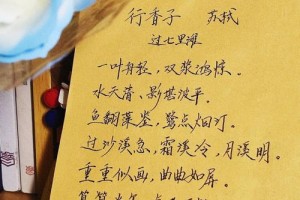 行香子 苏轼
过七里滩
一叶舟轻，双桨鸿惊。
水天清、影湛波平。
鱼翻藻鉴，鹭点烟汀。
过沙溪急，霜溪冷，月溪明。
重重似画，曲曲如屏。